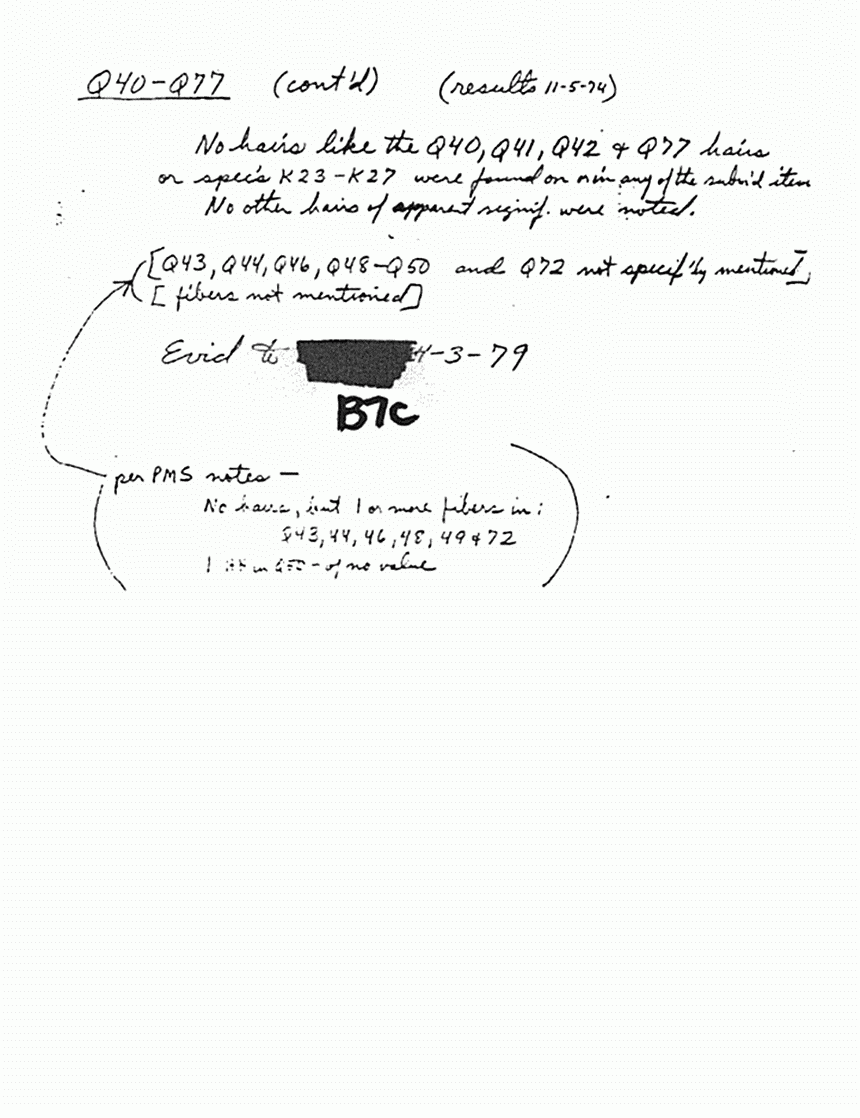 Q40-Q77 (cont'd) (results 11-5-74)
No hairs like the Q40, Q41, Q42 & Q77 hairs
or spec's K23-K27 were found on or in any of the subm'd item
No other hairs of apparent signif. were noted.
[Q43, Q44, Q46, Q48-Q50 and Q72 not specif'ly mentioned],
[fibers not mentioned]
Evid to 4-3-79
B7C
per PMS notes —
No hairs, but 1 or more fibers in:
Q43, 44, 46, 48, 49 & 72
1 in Q50 - of no value